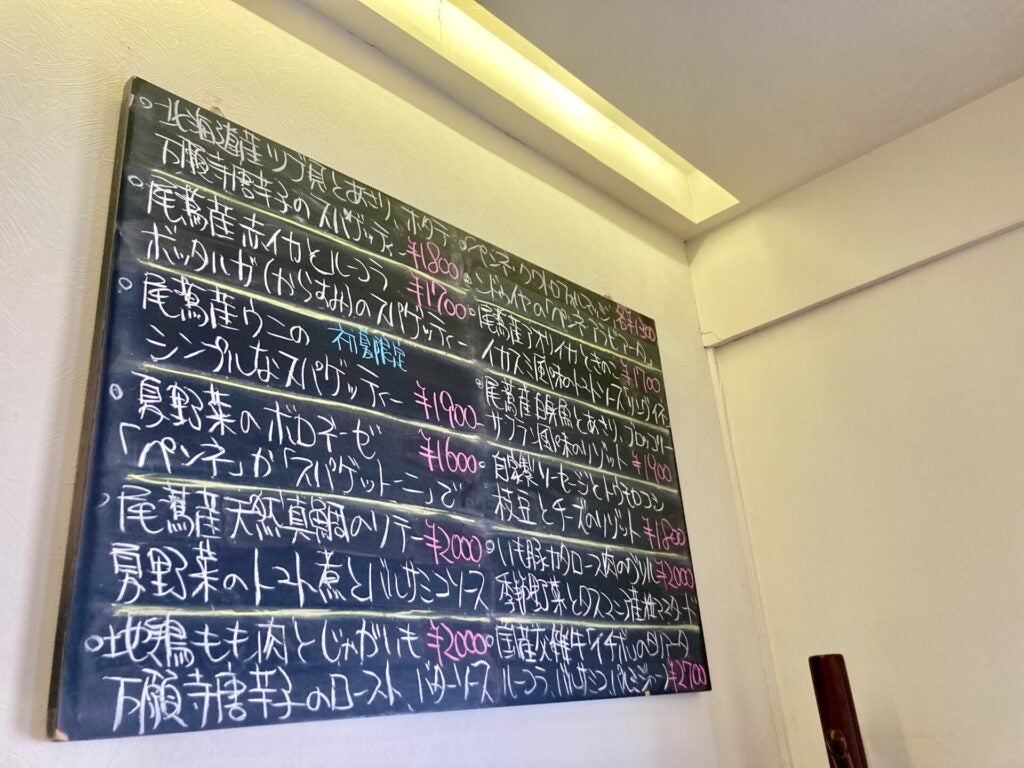 ○北海道産ツブ貝とあさり、ホタテ
万願寺唐辛子のスパゲッティー ¥1800
○尾鷲産赤イカとルーコラ ¥1700
ボッタルガ(からすみ)のスパゲッティー
○尾鷲産ウニの 初夏限定
シンプルなスパゲッティー ¥1900
○夏野菜のボロネーゼ ¥1600
「ペンネ」か「スパゲットーニ」で
尾鷲産天然真鯛のソテー ¥2000
夏野菜のトマト煮とバルサミコソース
○地鶏もも肉とじゃがいも ¥2000
万願寺唐辛子のロースト、バターソース
○ペンネ・クワトロフォルマッジ 各¥1300
○ペンネアラビアータ
○尾鷲産アオリイカときのこ ¥1700
イカスミ風味のトマト
○尾鷲産白身魚とあさり、ブロッコリー
サフラン風味のリゾット ¥1900
○自家製ソーセージとトウモロコシ
枝豆とチーズのリゾット ¥1800
○いも豚肩ロース肉のグリル ¥2000
季節野菜とタスマニア産粒マスタード
○国産牛イチボのタリアータ
ルーコラ、バルサミコ、パルミジャーノ ¥2700